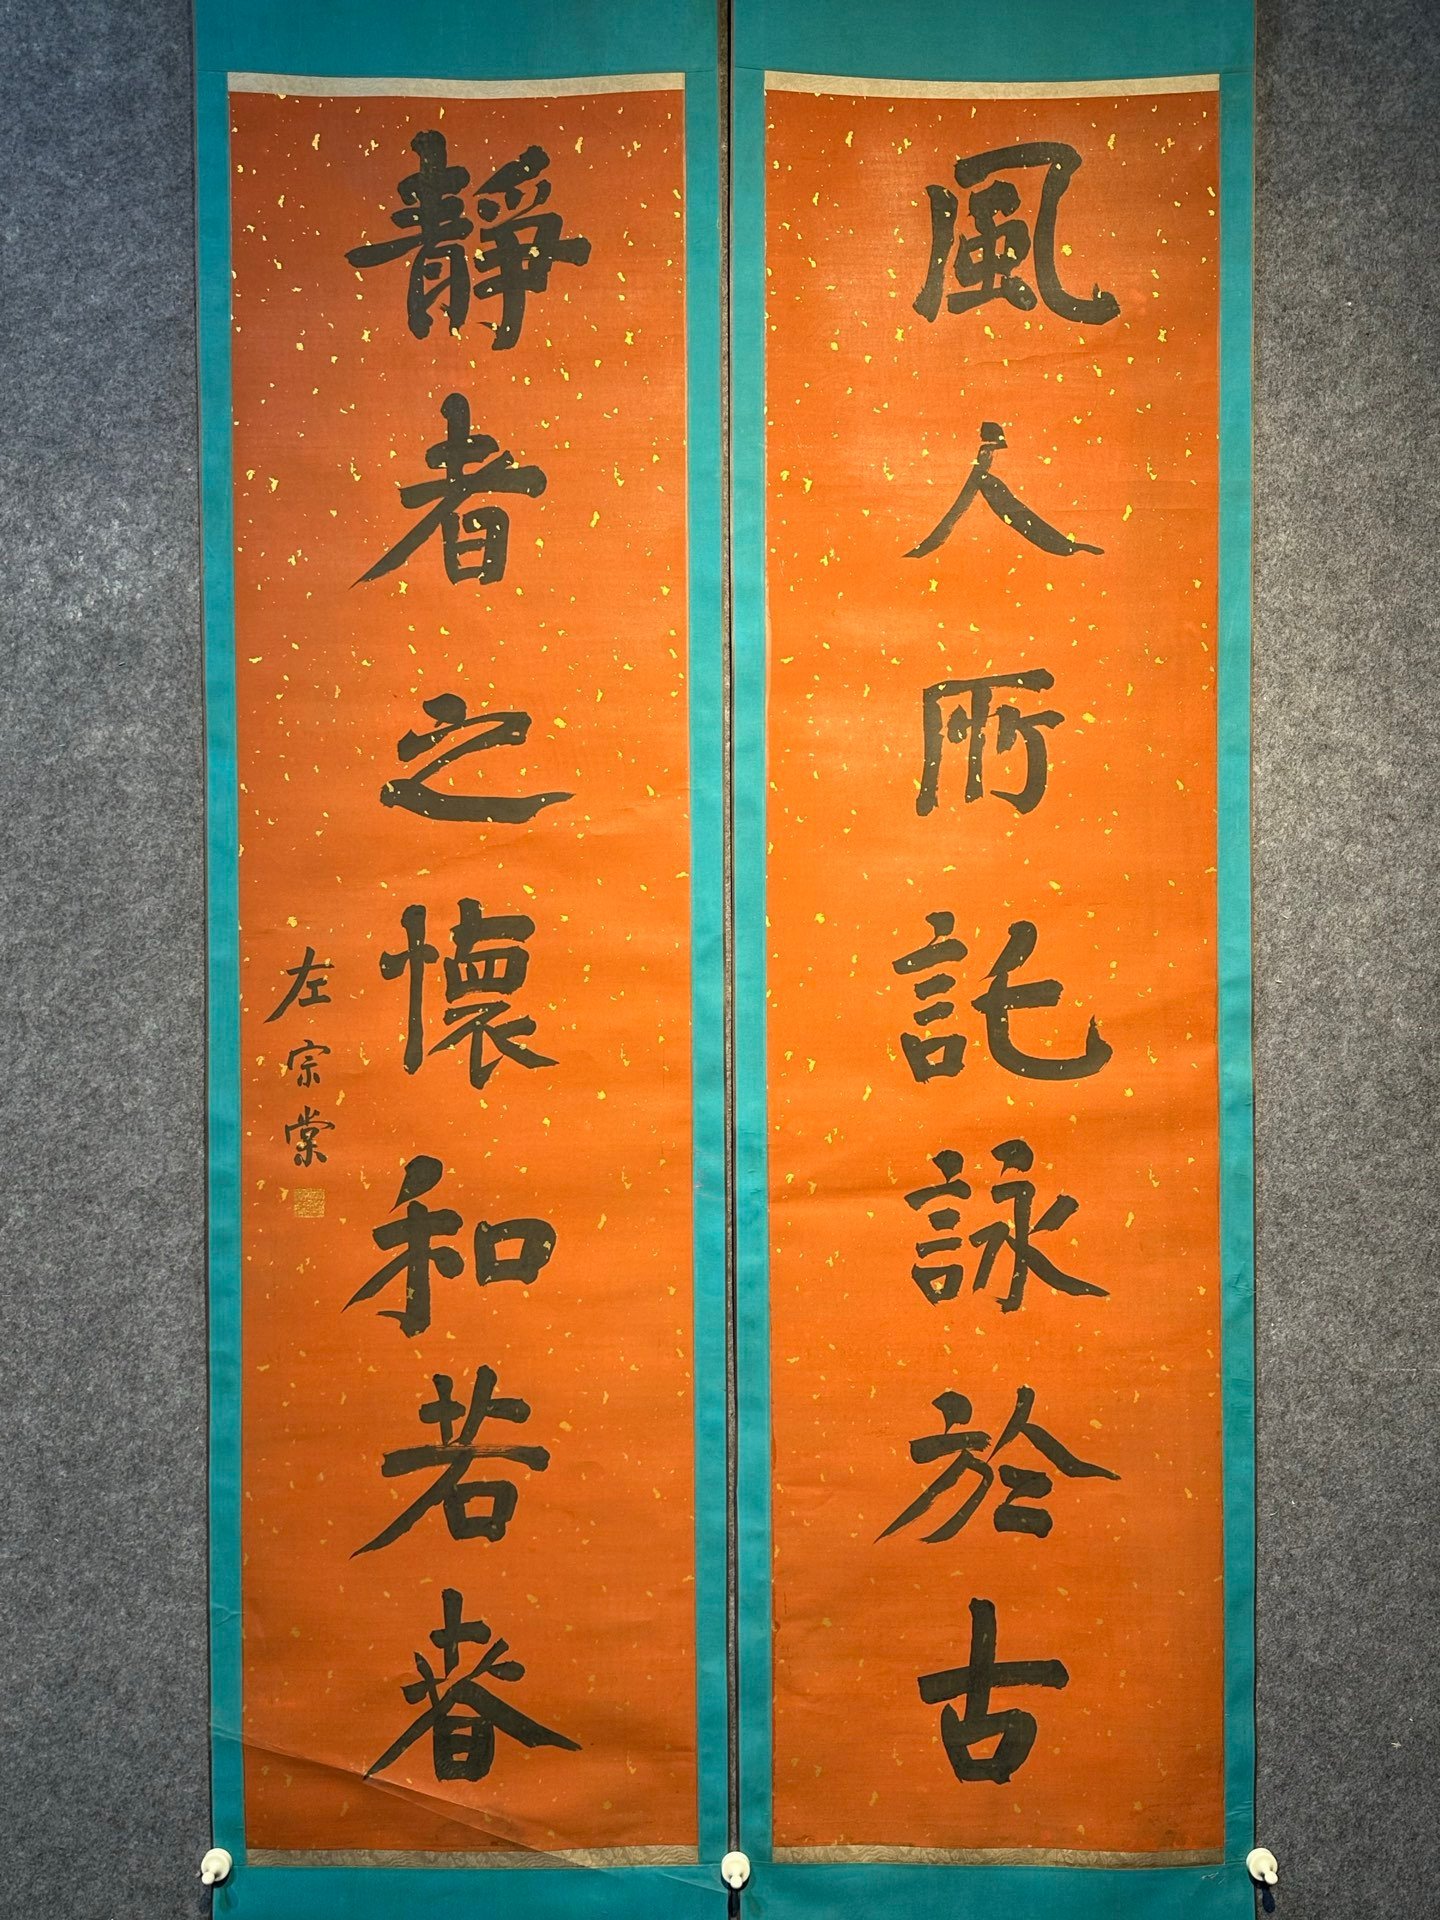 風人所託詠於古
靜者之懷和若春
左宗棠